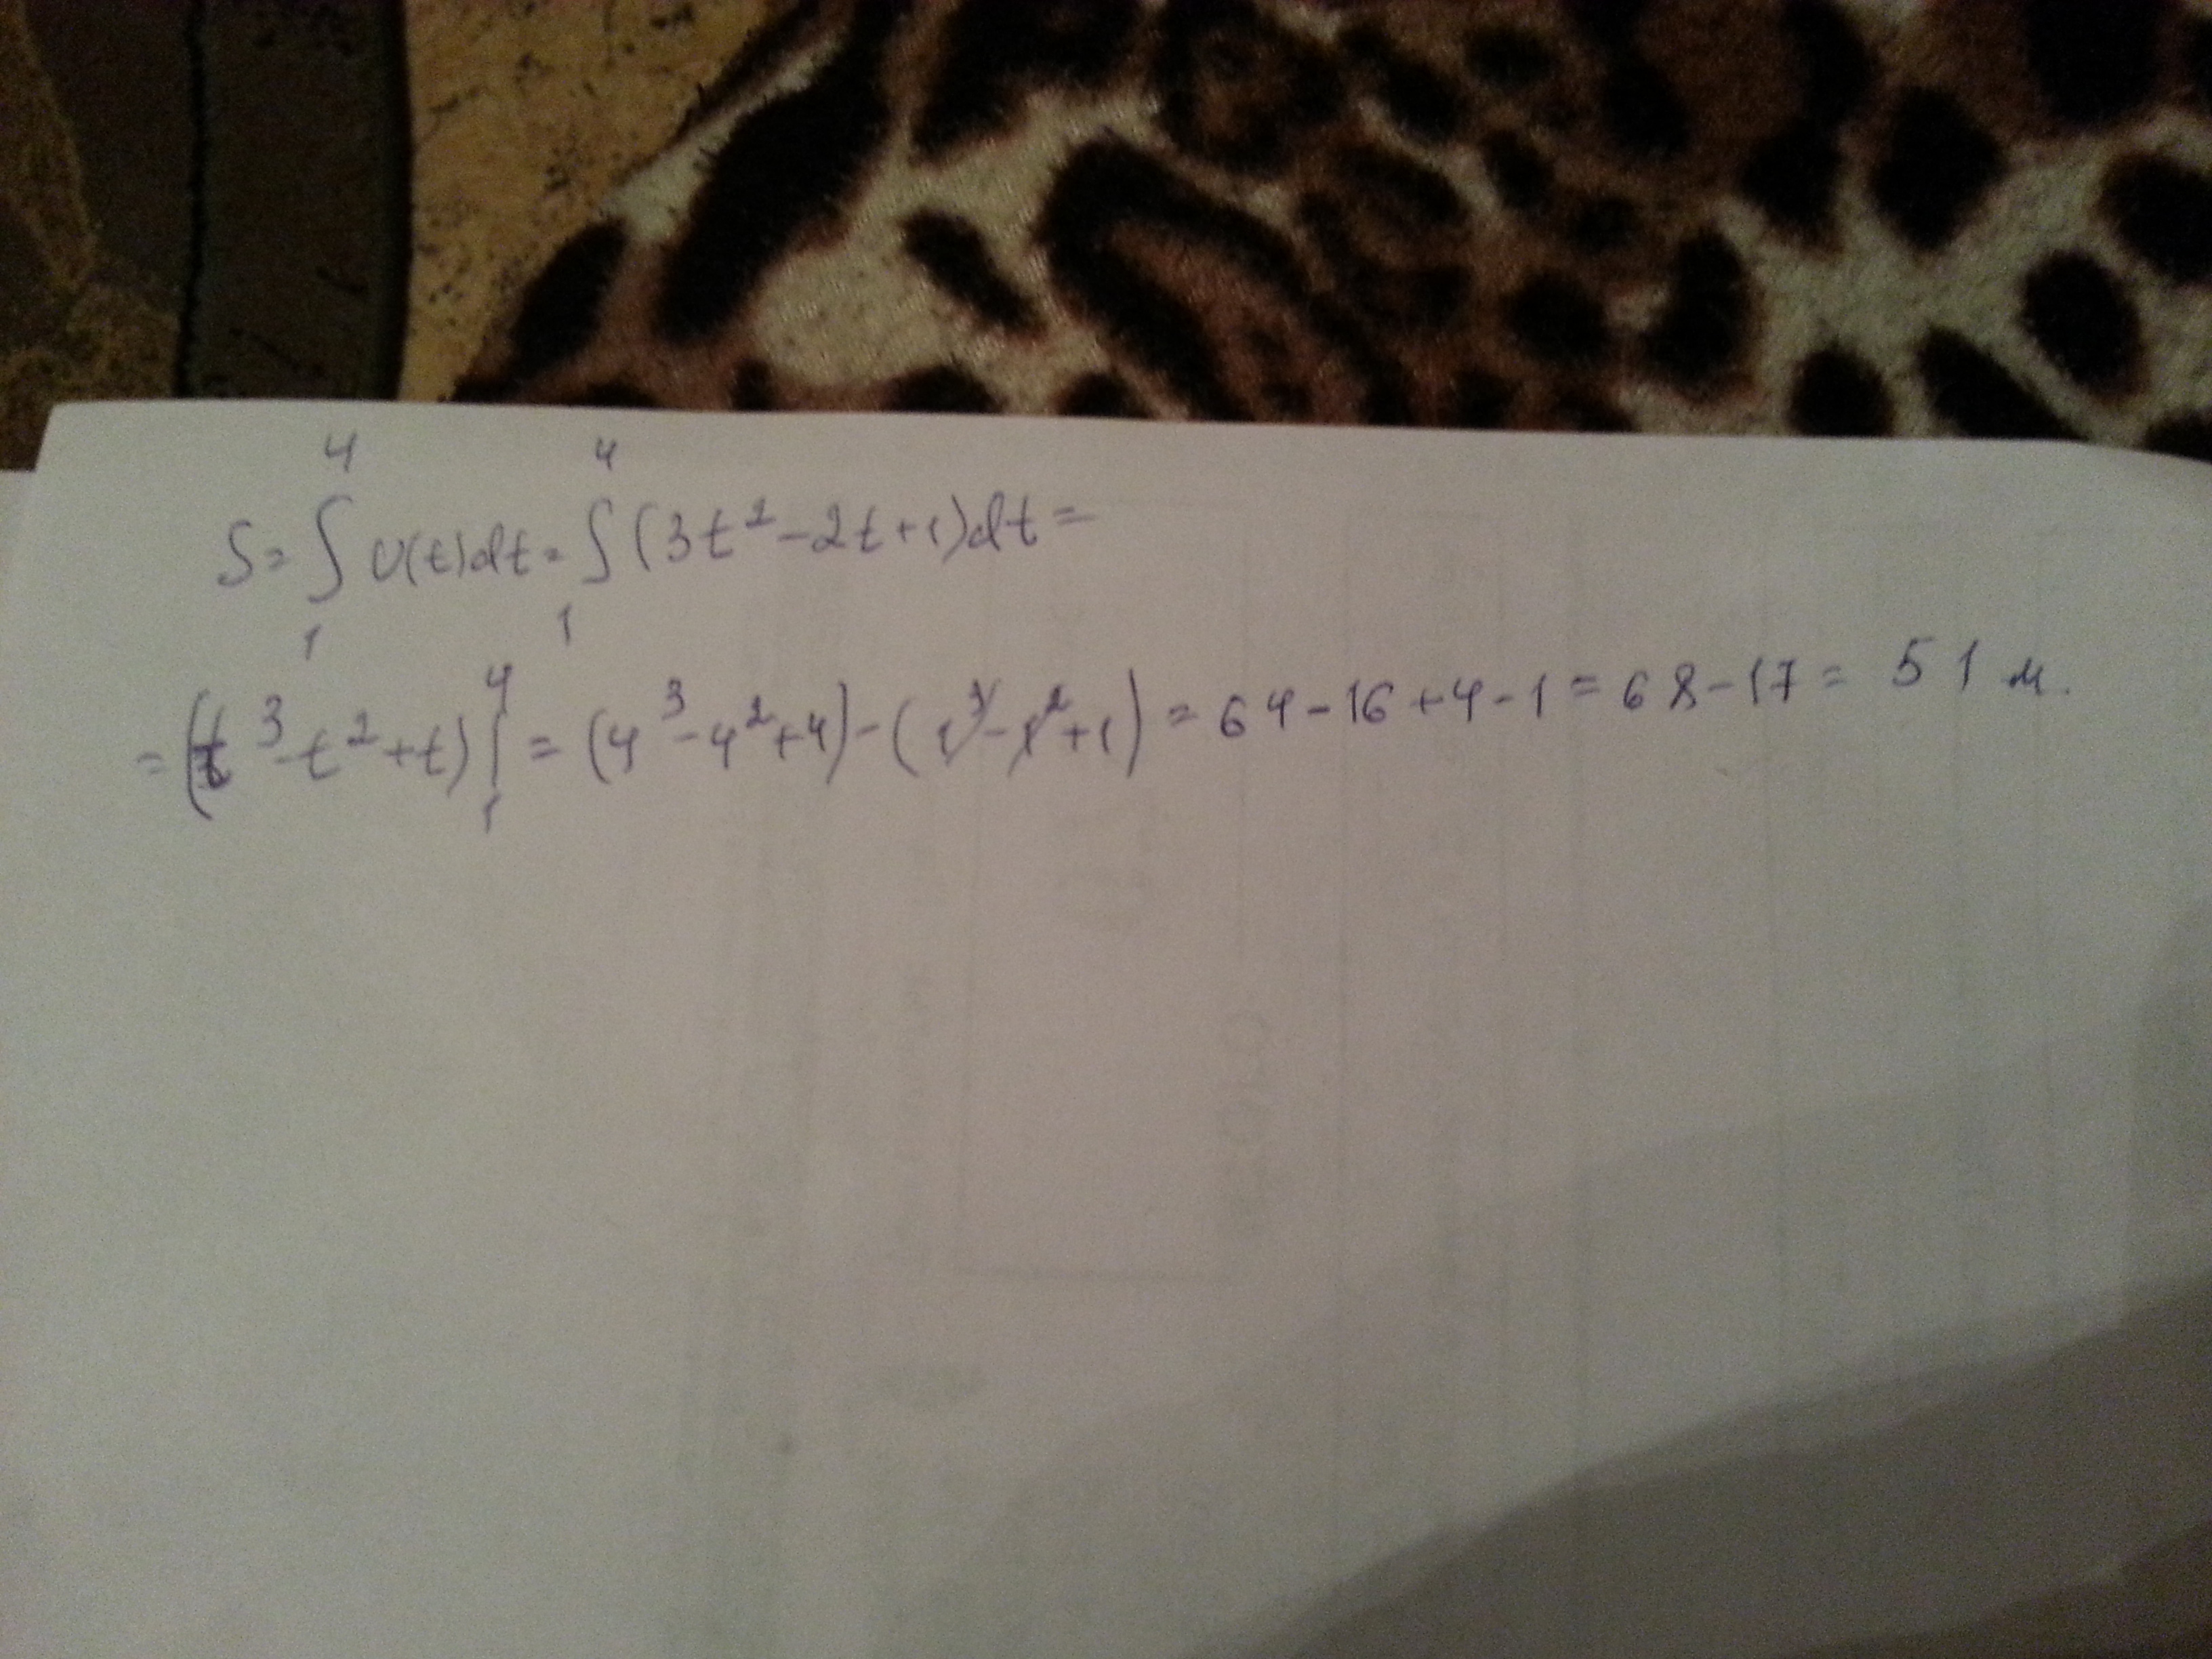 S = ∫₁⁴ v(t)dt = ∫₁⁴ (3t² - 2t + 1)dt =
= (t³ - t² + t)|₁⁴ = (4³ - 4² + 4) - (1³ - 1² + 1) = 64 - 16 + 4 - 1 = 68 - 17 = 51 м.